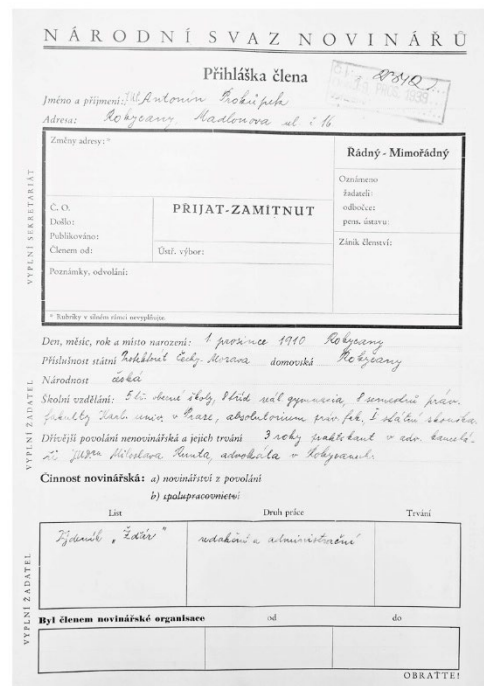 NÁRODNÍ SVAZ NOVINÁŘŮ
Přihláška člena
Jméno a příjmení: Antonín Prokůpek
Adresa: Rokycany, Madlonova ul. č 16
Změny adresy: *
Řádný - Mimořádný
Oznámeno
žadateli:
odbočce:
pens. ústavu:
Č. O.
Došlo:
Publikováno:
Členem od:
PŘIJAT-ZAMÍTNUT
Ústř. výbor:
Zánik členství:
Poznámky, odvolání:
* Rubriky v silném rámci nevyplňujte
VYPLNÍ SEKRETARIÁT
Den, měsíc, rok a místo narození: 1 prosince 1910 Rokycany
Příslušnost státní Protektorát Čechy-Morava domovská Rokycany
Národnost česká
Školní vzdělání: 5 tř. obecné školy, 8 tříd reál. gymnasia, 8 semestrů práv.
fakulty Karl. univ. v Praze, absolutorium práv. fak., I státní zkouška.
Dřívější povolání nenovinářská a jejich trvání 3 roky praktikant v adv. kancelá-
ři JUDra Miloslava advokáta v Rokycanech.
VYPLNÍ ŽADATEL
Činnost novinářská: a) novinářství z povolání
b) spolupracovnictví
List Druh práce Trvání
Týdeník „Žďár" redakční a administrační
Byl členem novinářské organisace od do
VYPLNÍ ŽADATEL
OBRAŤTE!